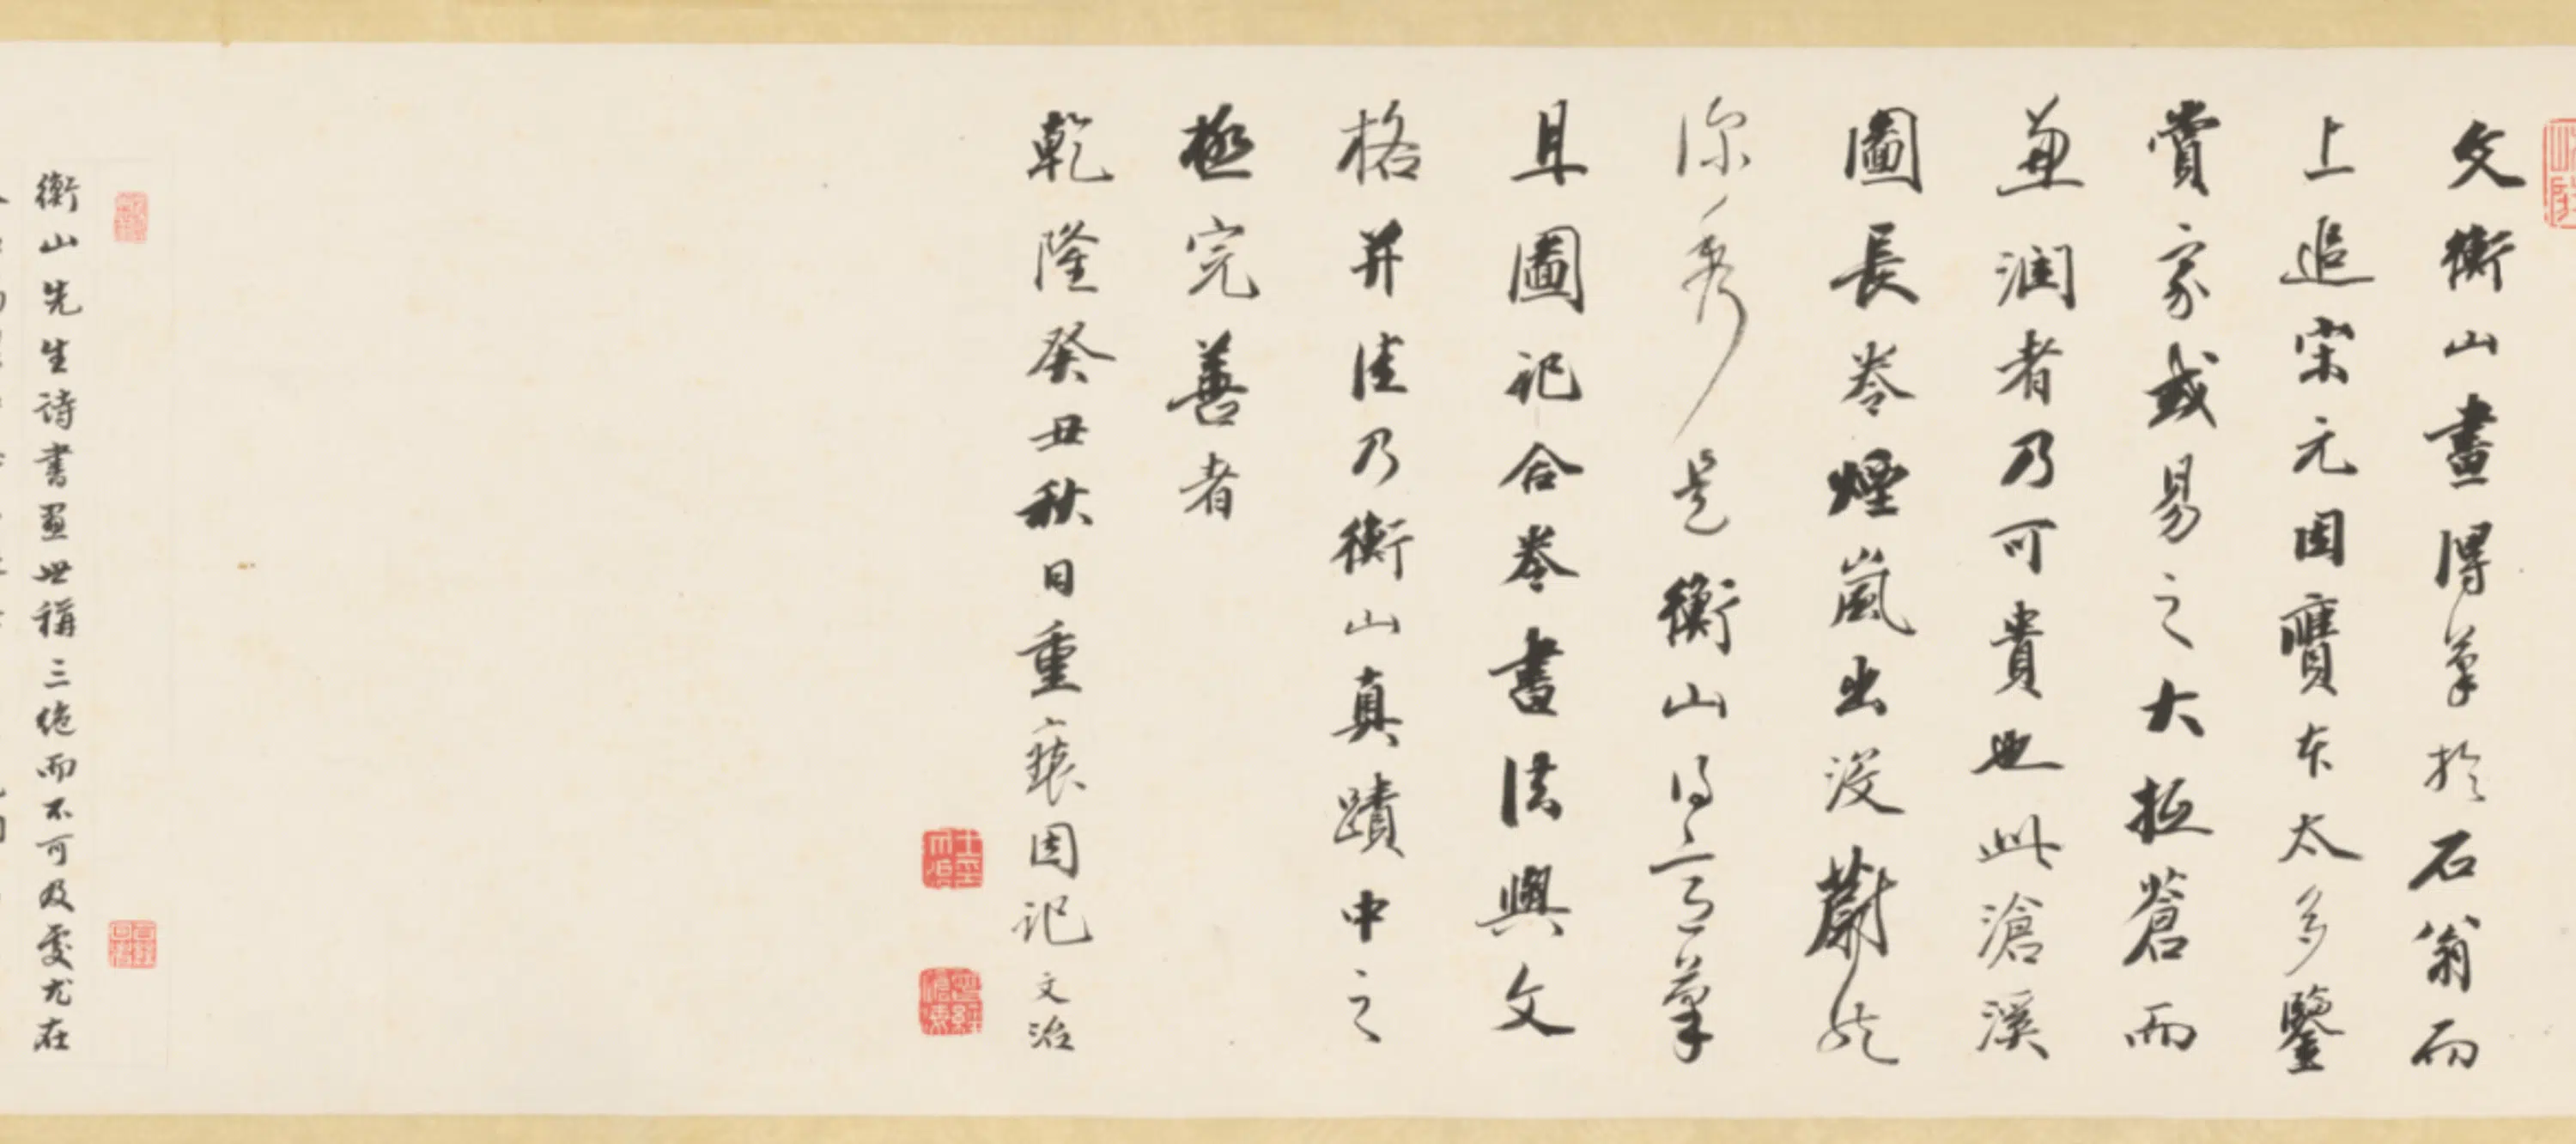 文衡山畫得筆於石翁而
上追宋元因贋本太多鑒
賞家或易之大抵蒼而
兼潤者乃可貴也此滄溪
圖長卷煙嵐出沒蔚然
深秀是衡山得意筆
且圖記合卷書法與文
格并佳乃衡山真蹟中之
極完善者
乾隆癸丑秋日重裝因記文治
曾經滄海
衡山先生詩書畫世稱三絕而不可及處尤在